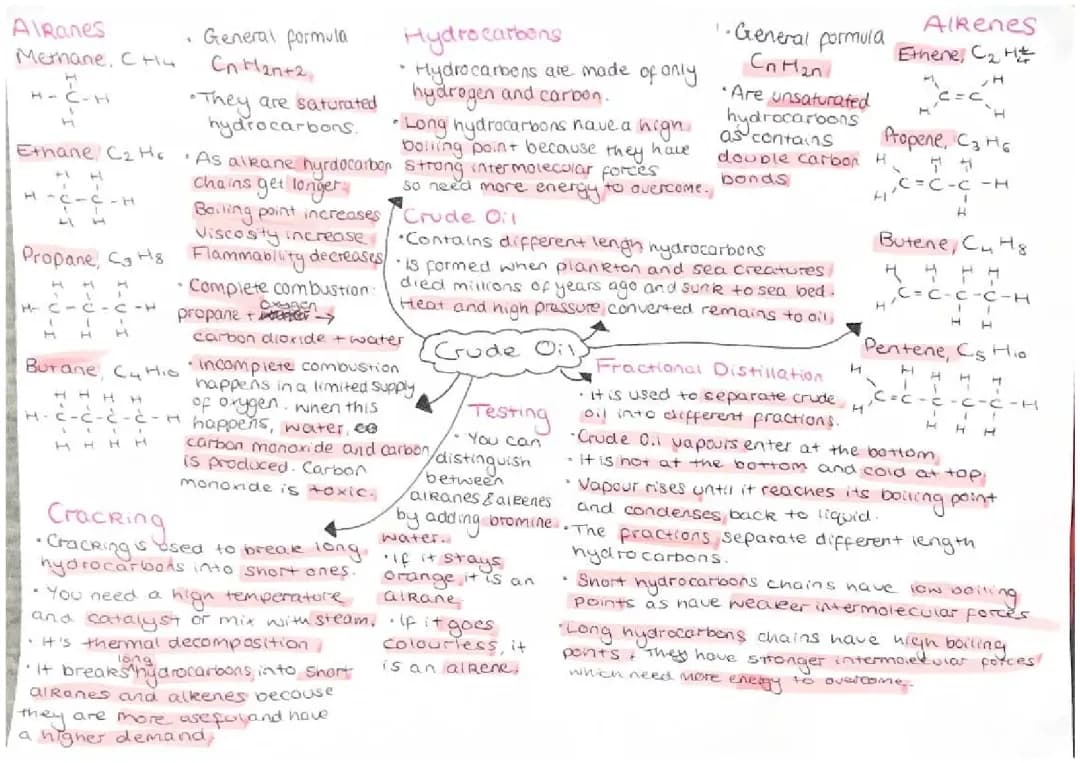 Alkanes
Methane, CH4
H
H - C - H
H
Ethane, C2H6
H H
H - C - C - H
H H
Propane, C3H8
H H H
H - C - C - C - H
H H H
Butane, C4H10
H H H H
H - C - C - C - C - H
H H H H
· General formula
CnH2n+2
· They are saturated
hydrocarbons.
· As alkane hyrdocarbon
chains get longer,
Boiling point increases
Viscosity increase
Flammability decreases
· Complete combustion:
oxygen
propane + →
carbon dioxide + water
· Incomplete combustion
happens in a limited supply
of oxygen. When this
happens, water, co
carbon monoxide and carbon
is produced. Carbon
monoxide is toxic.
Hydrocarbons
· Hydrocarbons are made of only
hydrogen and carbon.
· Long hydrocarbons have a high
boiling point because they have
strong intermolecular forces
so need more energy to overcome.
Crude Oil
· Contains different lengh hydrocarbons
· Is formed when plankton and sea creatures
died millions of years ago and sunk to sea bed.
Heat and high pressure, converted remains to oil,
Crude Oil
· General formula
CnH2n
· Are unsaturated
hydrocarbons
as contains
double carbon
bonds
Alkenes
Ethene, C2H4
H H
C = C
H H
Propene, C3H6
H H H
C = C - C - H
H H
Butene, C4H8
H H H H
C = C - C - C - H
H H H
Pentene, C5H10
H H H H H
C = C - C - C - C - H
H H H H
Fractional Distillation
· It is used to separate crude
oil into different fractions.
· Crude Oil vapours enter at the bottom,
· It is hot at the bottom and cold at top,
· Vapour rises until it reaches its boiling point
and condenses, back to liquid.
· The fractions, separate different length
hydrocarbons.
· Short hydrocarbons chains have low boiling
points as have weaker intermolecular forces
· Long hydrocarbons chains have high boiling
points, They have stronger intermolecular forces
which need more energy to overcome.
Testing
· You can
distinguish
between
alkanes & alkenes
by adding bromine
water.
· If it stays
orange, it is an
alkane
· If it goes
colourless, it
is an alkene,
Cracking
· Cracking is used to break long
hydrocarbons into short ones.
· You need a high temperature
and catalyst or mix with steam.
· It's thermal decomposition
long
· It breaks hydrocarbons, into short
alkanes and alkenes because
they are more useful and have
a higher demand,